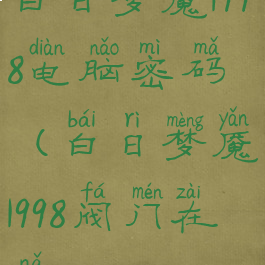 白日梦魇1998
diàn nǎo mì mǎ
8电脑密码
bái rì mèng yǎn
(白日梦魇
fá mén zài
1998阀门在
nǎ